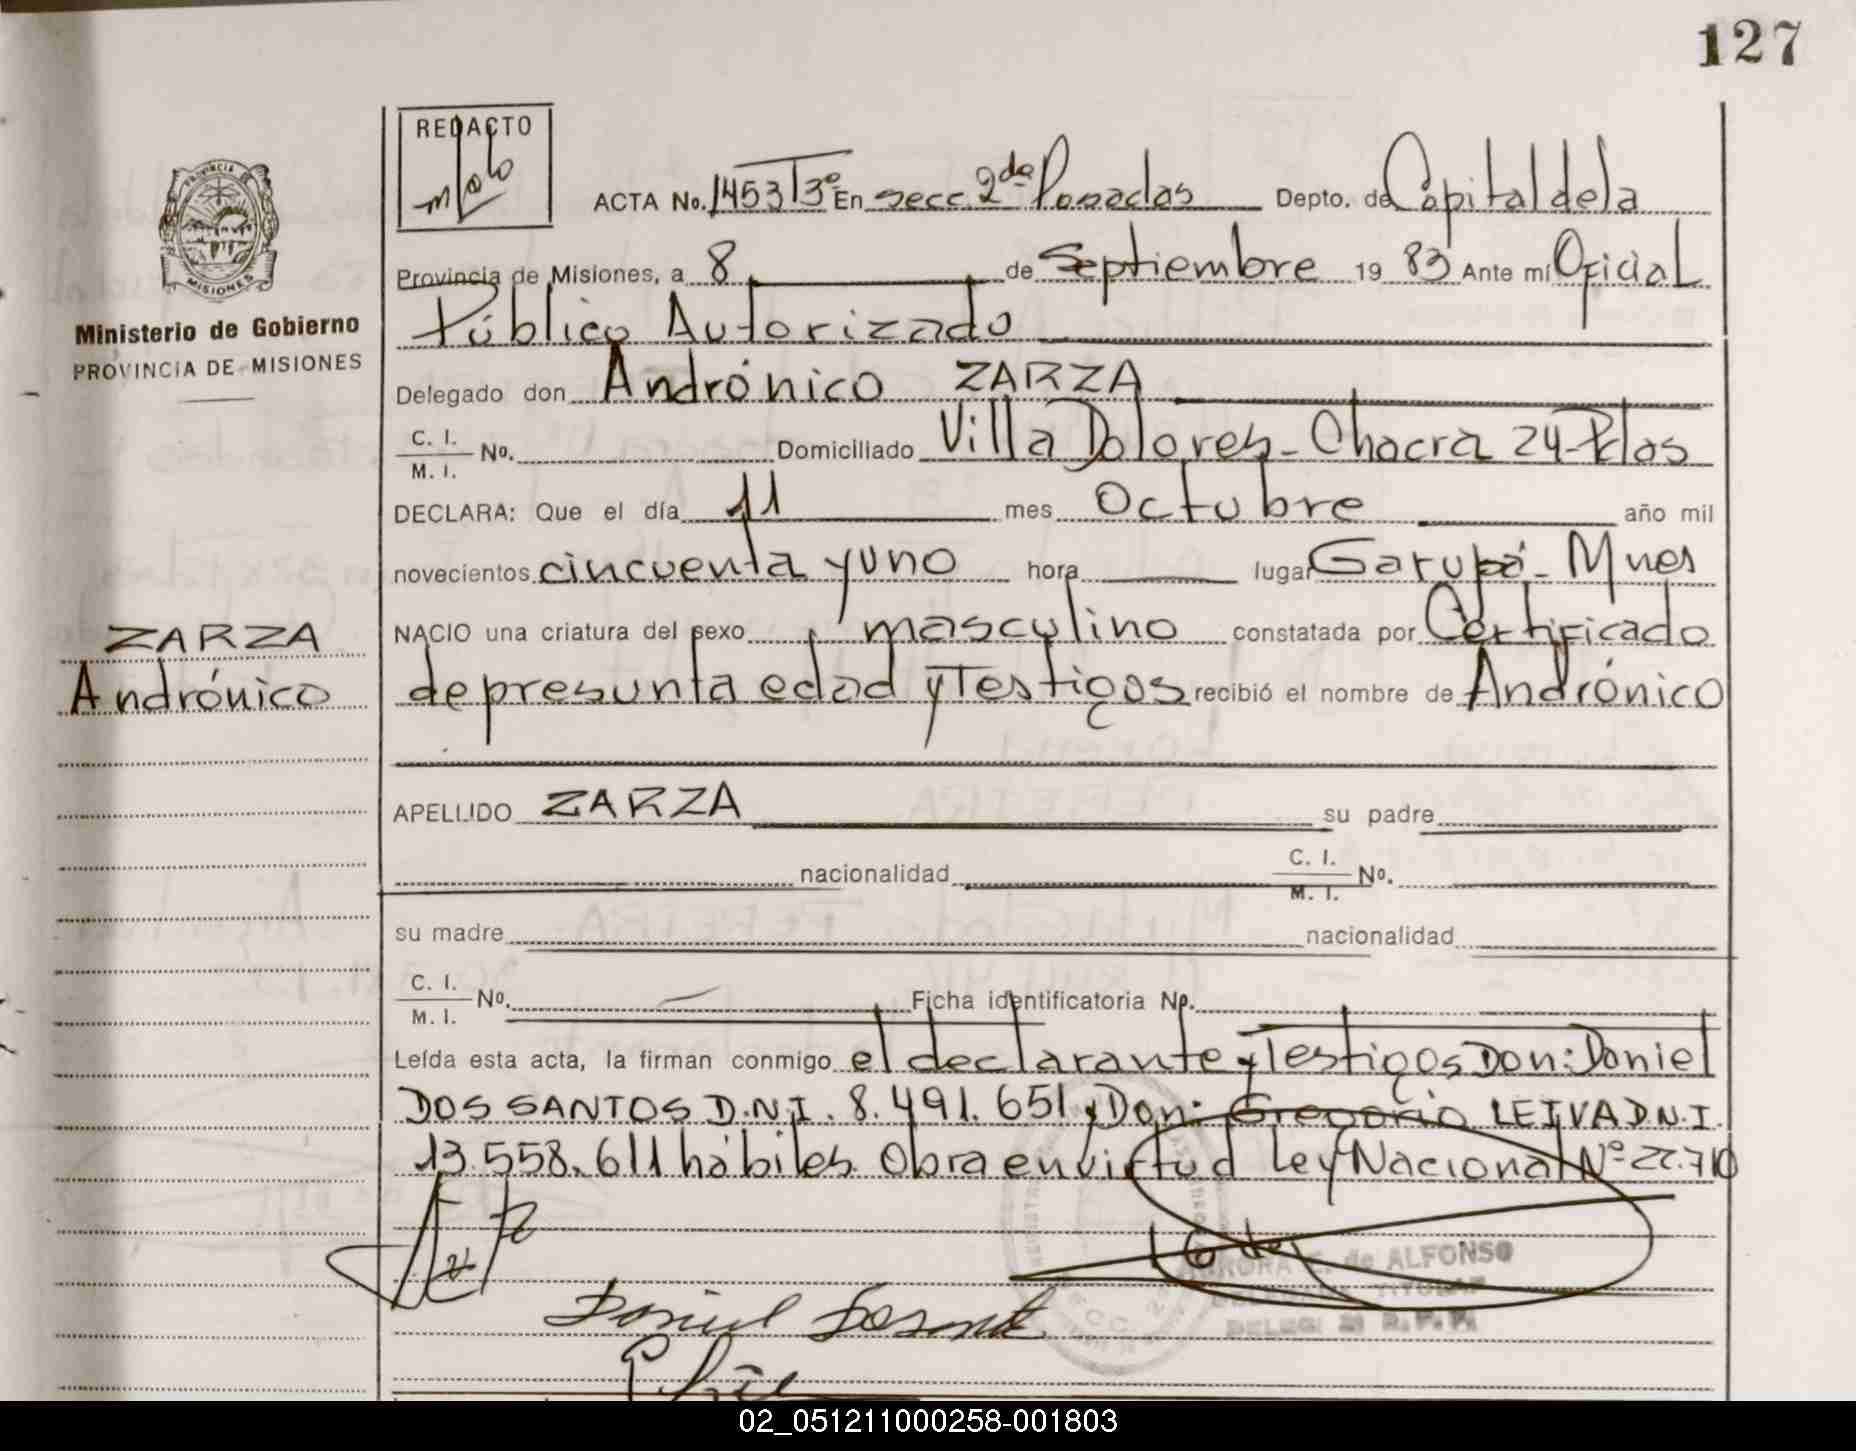 127
REDACTO
PROVINCIA DE
MISIONES
ACTA No. 1453 T3º En secc. 2da Posadas Depto. de Capital de la
Provincia de Misiones, a 8 de Septiembre 19 83 Ante mí Oficial
Público Autorizado
Ministerio de Gobierno
PROVINCIA DE MISIONES
Delegado don Andrónico ZARZA
C. I.
M. I. No. Domiciliado Villa Dolores - Chacra 24 - Pdas
DECLARA: Que el día 11 mes Octubre año mil
novecientos cincuenta y uno hora lugar Garupá - Mnes
NACIO una criatura del sexo masculino constatada por Certificado
ZARZA
Andrónico
de presunta edad y Testigos recibió el nombre de Andrónico
APELLIDO ZARZA su padre
nacionalidad C. I.
M. I. No.
su madre nacionalidad
C. I.
M. I. No. Ficha identificatoria No.
Leída esta acta, la firman conmigo el declarante y Testigos Don: Daniel
DOS SANTOS D.N.I. 8.491.651 y Don: Gregorio LEIVA D.N.I.
13.558.611 hábiles. Obra en virtud Ley Nacional Nº 22.710
AURORA E. de ALFONSO
DELEGADA TITULAR
DELEG. 2ª R.P.P.
02_051211000258-001803